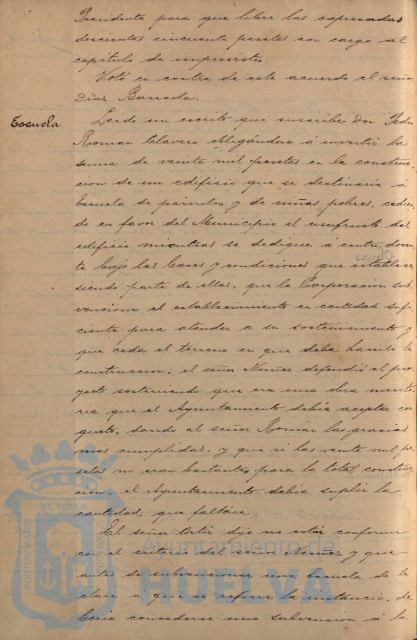 Presidente para que libre las expresadas
doscientas cincuenta pesetas con cargo al
capítulo de imprevistos.
Votó en contra de este acuerdo el señor
Díaz Barreda.
Escuela
Leido un escrito que suscribe Don
Román Talavero obligándose á invertir la
suma de veinte mil pesetas en la construc-
cion de un edificio que se destinaria á
Escuela de párvulos y de niñas pobres, cedien-
do en favor del Municipio el usufructo del
edificio mientras se dedique á centro docen-
te bajo las bases y condiciones que establece
siendo parte de ellas, que la Corporacion sub-
vencione el establecimiento en cantidad sufi-
ciente para atender á su sostenimiento y
que ceda el terreno en que deba hacerse la
construccion; el señor Nuñez defendió el pro-
yecto sosteniendo que era una obra merito-
ria que el Ayuntamiento debía aceptar con
gusto, dando al señor Román las gracias
mas cumplidas, y que si las veinte mil pe-
setas no eran bastantes para la total construc-
cion, el Ayuntamiento debia suplir la
cantidad que faltara.
El señor dijo no estar conforme
con el criterio del señor Nuñez y que
antes de subvencionar una escuela de la
clase á que se refiere la instancia, de-
beria concederse una subvencion á la
Ayuntamiento de
HUELVA